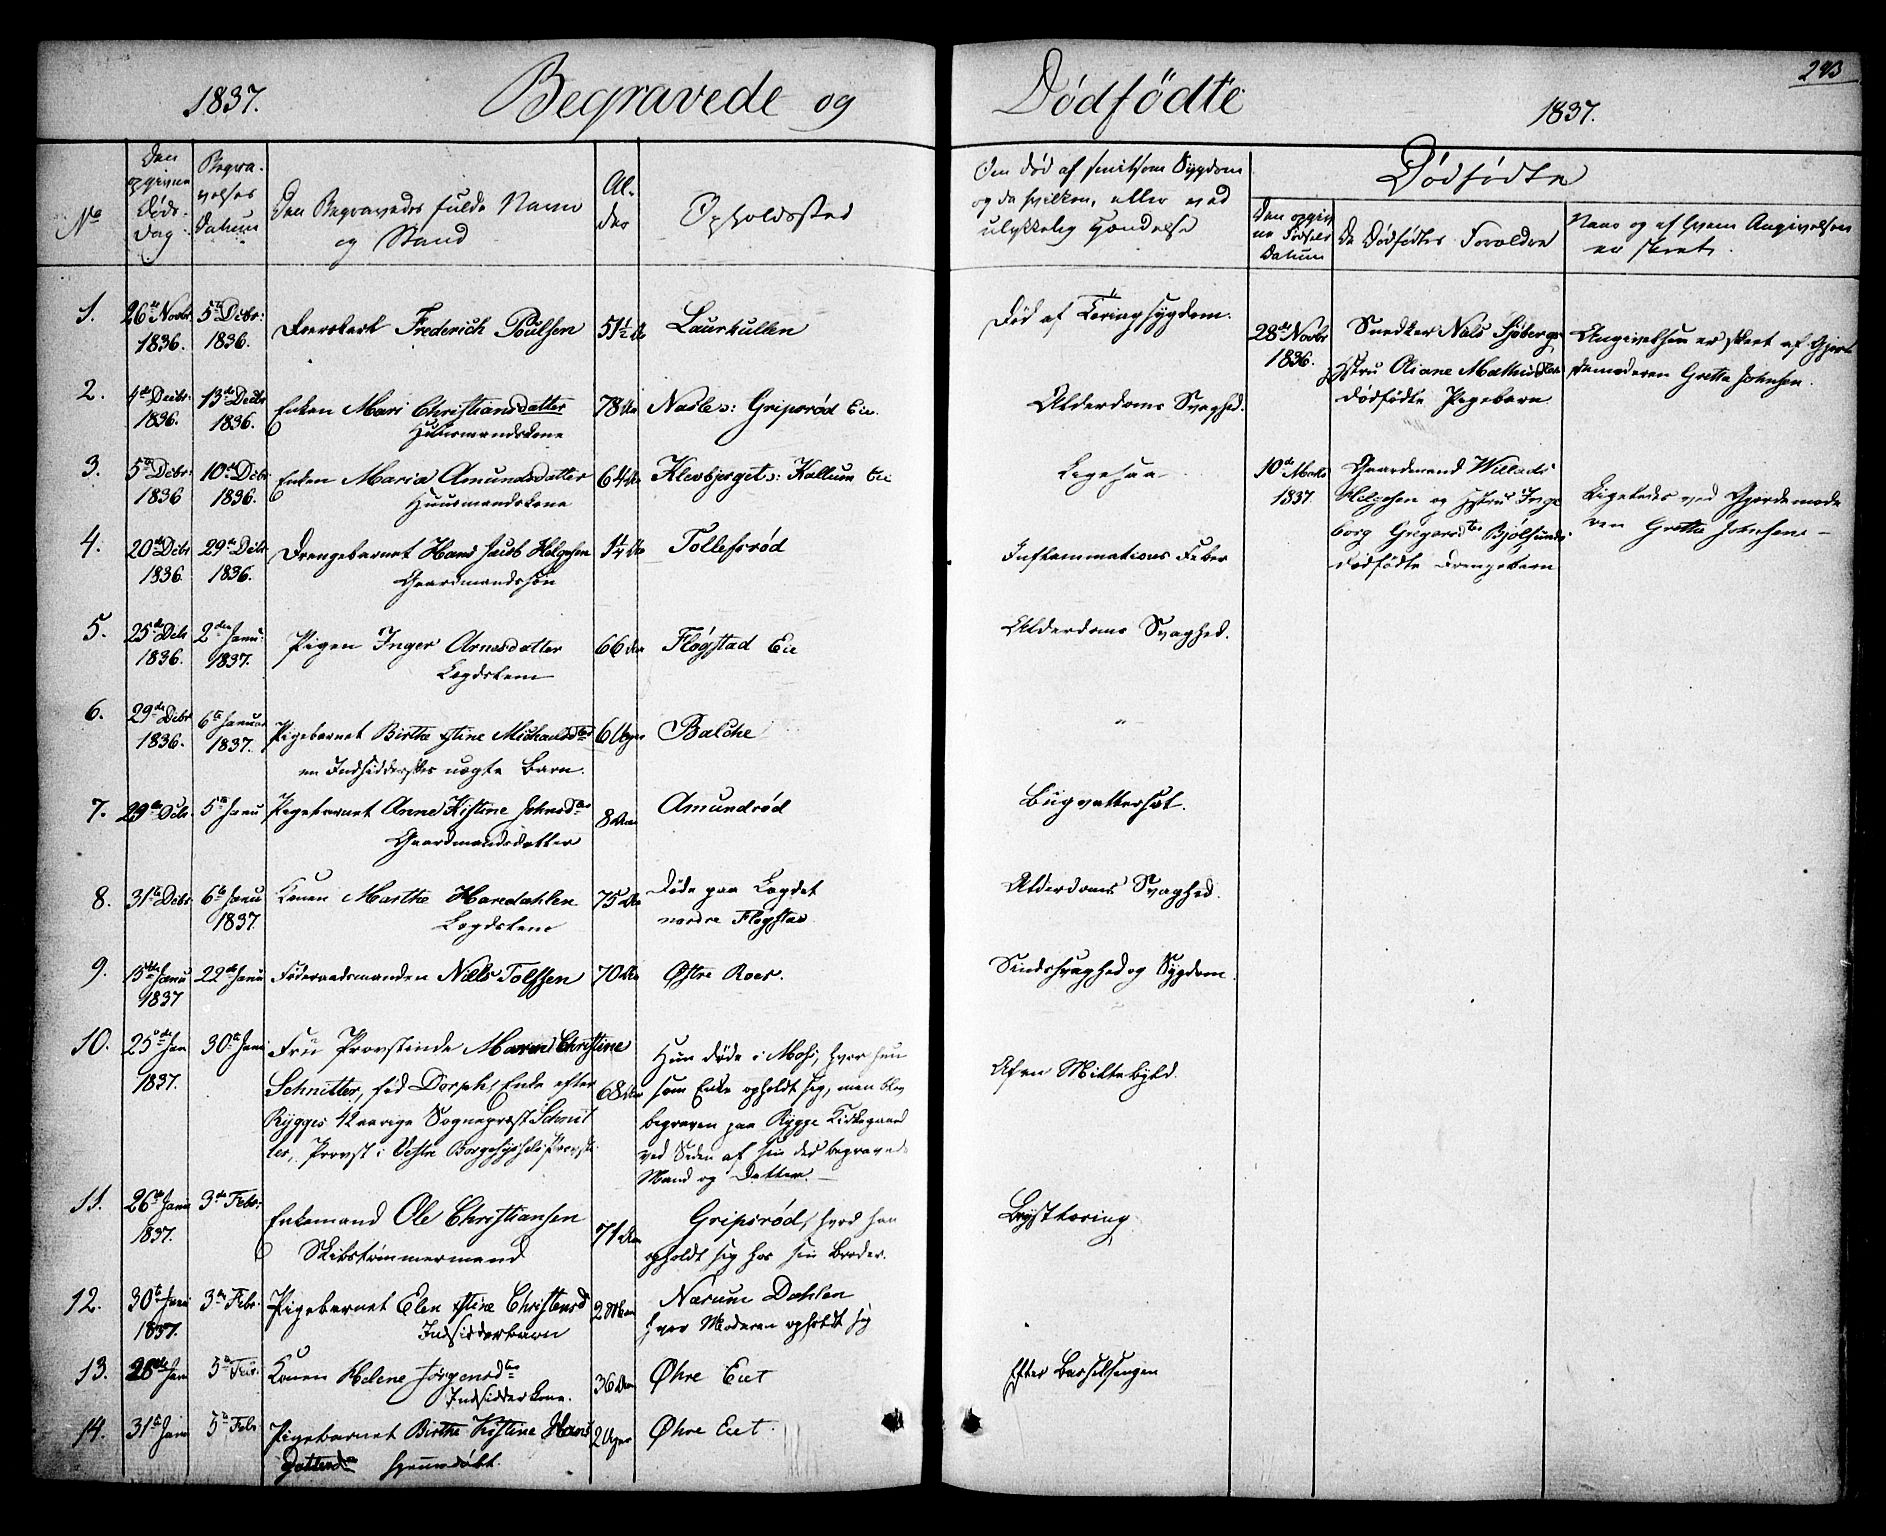 1837. Begravede og Dødfødte 1837.
243
No
Den opgivne Døds-dag
Begravelses Datum
Den Begravedes fulde Navn og Stand
Alder
Opholdssted
Om død af smitsom Sygdom
og da hvilken, eller ved
ulykkelig Hændelse
Dødfødte
Den opgivne Fødsels Datum
De Dødfødtes Forældre
Naar og af hvem Angivelsen
er skeet.
1. 26de Novbr 1836. 5te Decbr: 1836. Frederich Poulsen 51½ Aar Laurkullen
Død af Tæringssygdom.
28de Novbr 1836. Snedker Niels Sjøbergs
Hstru Oliane
dødfødte Pigebarn
Angivelsen er skeet af Gjor
demoderen Grethe Johnsen.
2. 4de Decbr: 1836. 13de Decbr 1836. Enken Mari Christiansdatter 78 Aar Nables: Gripsrød Eie.
Huusmandskone
Alderdoms Svaghed.
3. 5te Decbr: 1836 10de Decbr 1836. Enken Maria Amundsdatter 64 Aar Klevbjerget s: Kallum Eie
Huusmandskone
Ligesaa
10de Marts 1837. Gaardmand Willads
Helgesen og Hstru Inge
borg Gregersdtr Bjølsund
dødfødte Drengebarn
Ligeledes ved Gjordemode
ren Grethe Johnsen –
4. 20de Decbr 1836. 29de Decbr 1836. Drengebarnet Hans Jacob Helgesen 1¼ Aar Tollefsrød
Gaardmandssøn
Inflammations Feber
5. 25de Decbr 1836. 2den Janu: 1837. Pigen Inger Arnesdatter 66 Aar Fløgstad Eie
Lægdslem
Alderdoms Svaghed.
6. 29de Decbr 1836. 6te Januar 1837. Pigebarnet Birthe Stine Michaelsdtr 6 Uger Balche
en Indsidderskes uægte Barn.
"
7. 29de Decbr 5te Janu Pigebarnet Anne Kistine Johnsdtr 8 Amundrød
Gaardmandsdatter
8. 31te Decbr 6te Janu 1837. Konen Marthe Haredahlen 75 Aar Døde paa Lægdet
Lægdslem nordre Fløgstad
Alderdoms Svaghed.
9. 15de Janu 1837 22de Janu Føderaadsmanden Niels Tolfsen 70 Aar Østre Roer.
Sindssvaghed og Sygdom.
10. 25de Jan 1837. 30te Janu Fru Provstinde Maren Christine
Schnitler, fød Dorph, Enke efter 68 Aar
Rygges 42 aarige Sognepræst Schnit
ler, Provst i Vestre Borgesyssels Provsti
Hun døde i Moss, hvor hun
som Enke opholdt sig, men blev
begraven paa Rygge Kirkegaard
ved Siden af sin der begravede
Mand og Datter. –
11. 26de Janu 1837. 3die Febr: Enkemand Ole Christiansen 71 Aar Gripsrød, hvor han
Skibstømmermand opholdt sig hos sin Broder.
Brysttæring
12. 30te Janu 1837. 3die Febr. Pigebarnet Elen Stine Christensd 2 Nærum Dahlen
Indsidderbarn hvor Moderen opholdt sig
13. 28de Jan 5te Febr. Konen Helene Jørgensdtr 36 Aar Øhre Eiet
Indsidderkone.
Efter Barselsengen
14. 31te Jan 5te Febr Pigebarnet Birthe Kistine Hans 2 Uger Øhre Eiet.
hjemmedøbt.